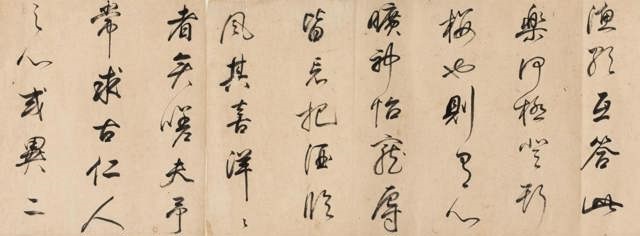 漁歌互答此
樂何極登斯
樓也則有心
曠神怡寵辱
皆忘把酒臨
風其喜洋〻
者矣嗟夫予
常求古仁人
之心或異二